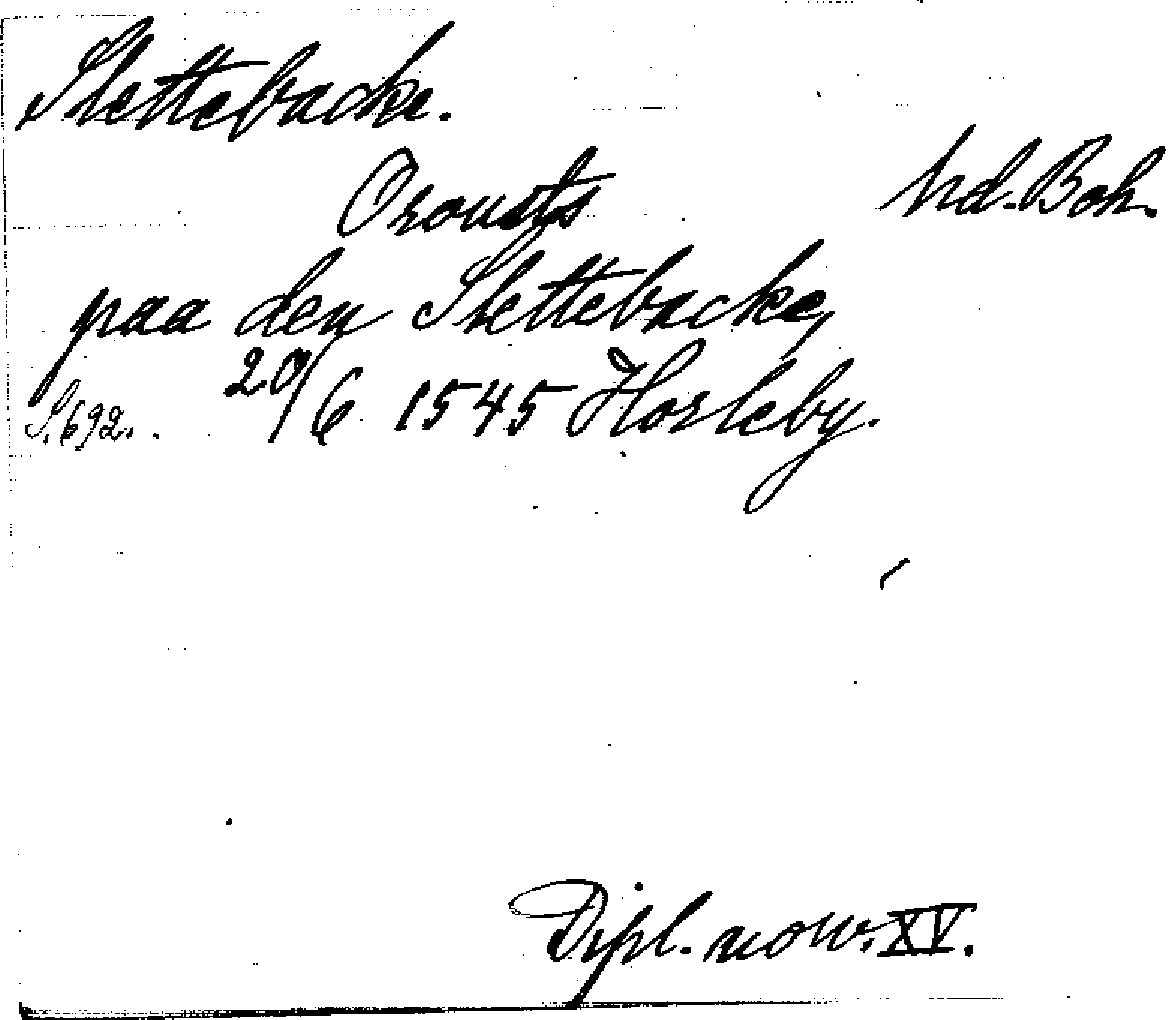 Slettebacke.
Orousts hd. Boh.
paa den Slettebacke,
S. 692. 20/6 1545 Horleby.
Dipl. norv. XV.